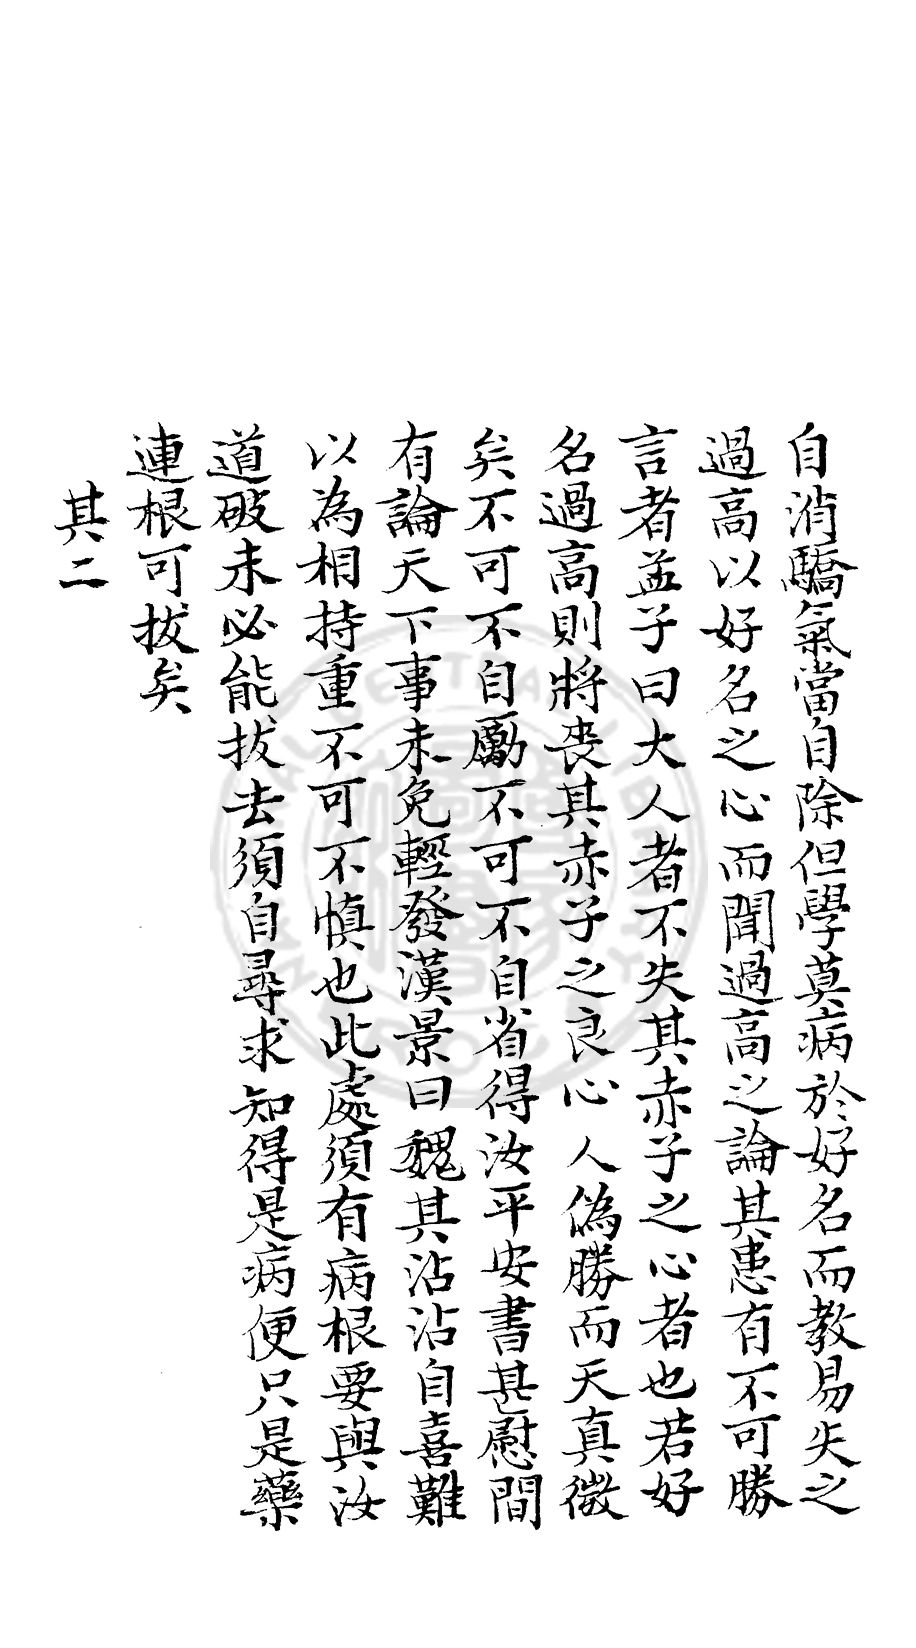 自消驕氣當自除但學莫病於好名而教易失之
過高以好名之心而聞過高之論其患有不可勝
言者孟子曰大人者不失其赤子之心者也若好
名過高則將喪其赤子之良心人偽勝而天真微
矣不可不自勵不可不自省得汝平安書甚慰間
有論天下事未免輕發漢景曰魏其沾沾自喜難
以為相持重不可不慎也此處須有病根要與汝
道破未必能拔去須自尋求知得是病便只是藥
連根可拔矣
其二